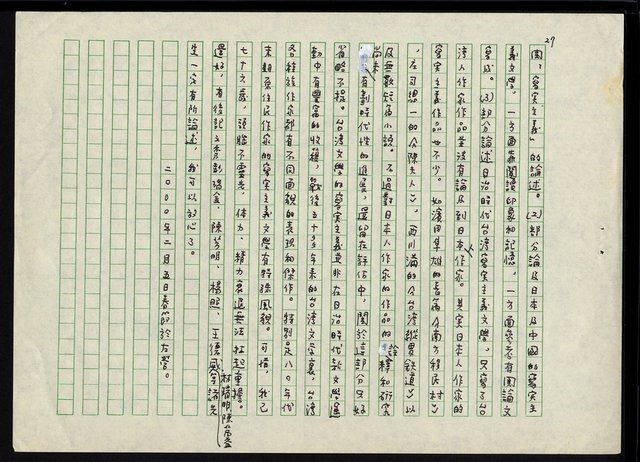 29
團，寫實主義」的論述。(2)部分論及日本及中國的寫實主
義文學，一方面靠閱讀印象和記憶，一方面參考有關論文
寫成。(3)部分論述日治時代台灣寫實主義文學，只寫了台
灣人作家作品並沒有論及到日本人作家。其實日本人作家的
寫實主義作品也不少。如濱田隼雄的長篇《南方移民村》
，庄司總一的《陳夫人》，西川滿的《台灣縱貫鐵道》以
及無數短篇小說。不過對日本人作家的作品的詮釋和研究
尚未有劃時代性的進展，還留在評估中，關於這部分只好
省略不提。台灣文學的寫實主義並非在日治時代新文學運
動中有豐富的收穫，戰後五十多年來的台灣文學裏，台灣
各種族作家都有不同面貌的表現和傑作。特別是八〇年代
來原住民作家的寫實主義文學有特殊風貌。可惜，我已
七十六歲，頭腦不靈光，體力、精力衰退無法扛起重擔。
還好，有後起之秀彭瑞金、陳芳明、楊照、王德威、林瑞明、陳萬益等諸先
生一定有所論述，我可以放心了。
二〇〇〇年二月五日春節於左營。